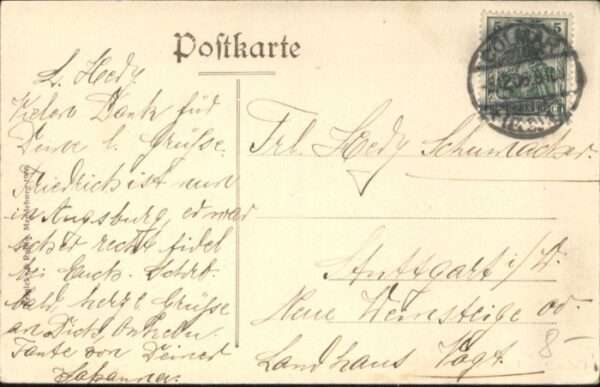 Postkarte
L. Hedy.
Vielen Dank für
Deine l. Grüsse.
Friedrich ist nun
in Augsburg, er war
sicher recht fidel
bei Euch. Schrb.
bald, herzl. Grüsse
an Dich, Onkel u.
Tante von Deiner
Johanna.
Frl. Hedy Schumacher.
Stuttgart i/W.
Neue Weinsteige od.
Landhaus Vogt. 8-
5 5
COLMAR